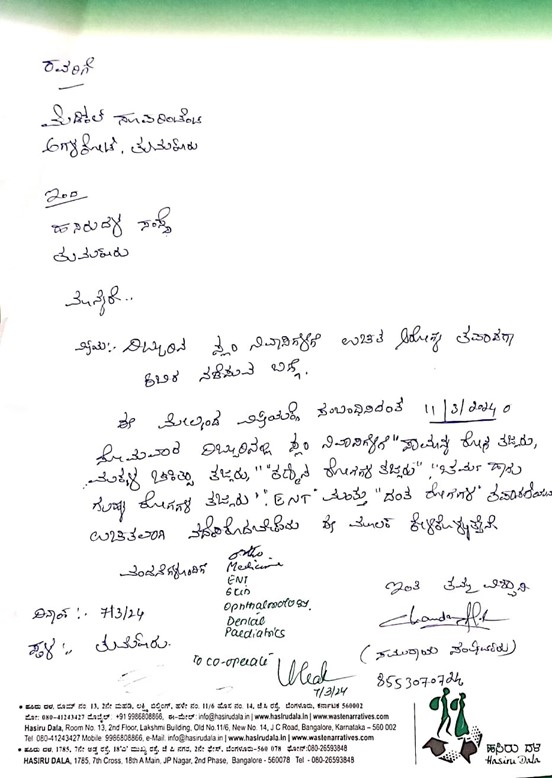 ರವರಿಗೆ
ಮೆಡಿಕಲ್ ಸೂಪರಿಂಟೆಂಟ
ತುಮಕೂರು
ಇಂದ
ಹಸಿರುದಳ ಸಂಸ್ಥೆ
ತುಮಕೂರು
ಮಾನ್ಯರೆ..
ವಿಷಯ:- ದಿಬ್ಬೂರಿನ ಸ್ಲಂ ನಿವಾಸಿಗಳಿಗೆ ಉಚಿತ ಆರೋಗ್ಯ ತಪಾಸಣಾ
ಶಿಬಿರ ನಡೆಸುವ ಬಗ್ಗೆ.
ಈ ಮೇಲ್ಕಂಡ ವಿಷಯಕ್ಕೆ ಸಂಬಂಧಿಸಿದಂತೆ 11/3/2024 ರ
ಸೋಮವಾರ ದಿಬ್ಬೂರಿನಲ್ಲಿ ಸ್ಲಂ ನಿವಾಸಿಗಳಿಗೆ "ಸಾಮಾನ್ಯ ರೋಗ ತಜ್ಞರು,
ಮಕ್ಕಳ ಚಿಕಿತ್ಸಾ ತಜ್ಞರು," "ರೋಗಗಳ ತಜ್ಞರು", "ಚರ್ಮ ಹಾಗು
ರೋಗಗಳ ತಜ್ಞರು". "ENT" ಮತ್ತು "ದಂತ ರೋಗಗಳ" ತಪಾಸಣೆಯನ್ನು
ಉಚಿತವಾಗಿ ನಡೆಸಿಕೊಡಬೇಕೆಂದು ಈ ಮೂಲಕ ಕೇಳಿಕೊಳ್ಳುತ್ತೇವೆ
ವಂದನೆಗಳೊಂದಿಗೆ
ortho
Medicine
ENT
Skin
Ophthalmology.
Dental
Paediatrics
ಇಂತಿ ತಮ್ಮ ವಿಶ್ವಾಸಿ
ದಿನಾಂಕ:- 7/3/24
ಸ್ಥಳ:- ತುಮಕೂರು.
(ಸಮುದಾಯ ಸಂಘಟಕರು)
8553070724
To co-operate
7/3/24
● ಹಸಿರು ದಳ, ರೂಮ್ ನಂ 13, 2ನೇ ಮಹಡಿ, ಲಕ್ಷ್ಮಿ ಬಿಲ್ಡಿಂಗ್, ಹಳೇ ನಂ. 11/6 ಹೊಸ ನಂ. 14, ಜೆ.ಸಿ ರಸ್ತೆ, ಬೆಂಗಳೂರು, ಕರ್ನಾಟಕ 560002
ಫೋ: 080-41243427 ಮೊಬೈಲ್: +91 9986808866, ಈ-ಮೇಲ್: info@hasirudala.in | www.hasirudala.in | www.wastenarratives.com
Hasiru Dala, Room No. 13, 2nd Floor, Lakshmi Building, Old No.11/6, New No. 14, J C Road, Bangalore, Karnataka – 560 002
Tel 080-41243427 Mobile 9966808866, e-Mail. info@hasirudala.in | www.hasirudala.in | www.wastenarratives.com
● ಹಸಿರು ದಳ, 1785, 7ನೇ ಅಡ್ಡ ರಸ್ತೆ, 18'ಎ' ಮುಖ್ಯ ರಸ್ತೆ, ಜೆ ಪಿ ನಗರ, 2ನೇ ಫೇಸ್, ಬೆಂಗಳೂರು-560 078 ಫೋನ್:080-26593848
HASIRU DALA, 1785, 7th Cross, 18th A Main, JP Nagar, 2nd Phase, Bangalore - 560078 Tel - 080-26593848
ಹಸಿರು ದಳ
Hasiru Dala